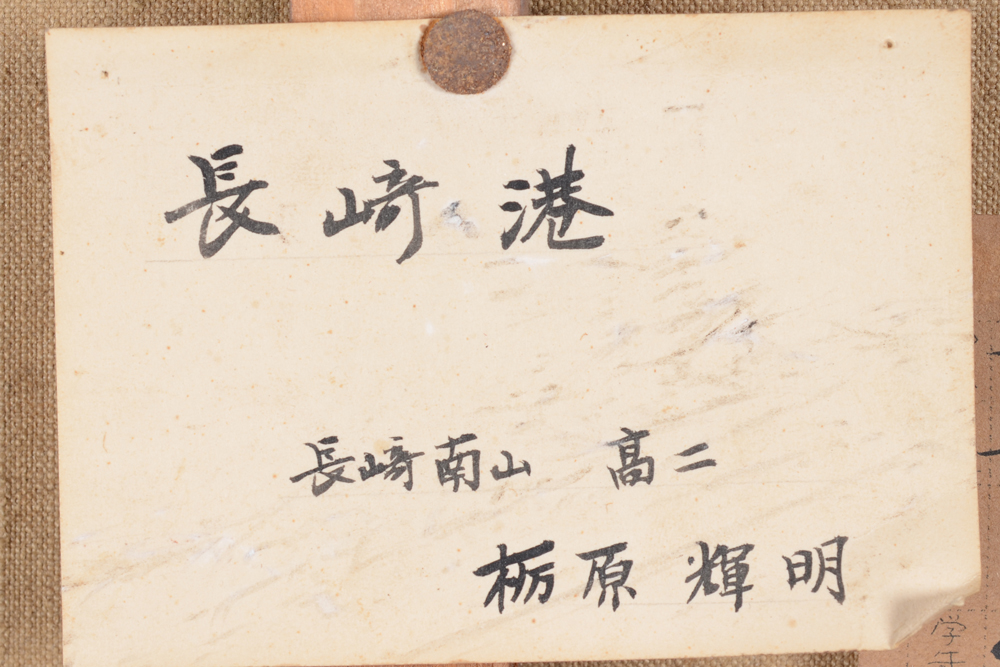 長崎港
長崎南山 高二
栃原 輝明
学年